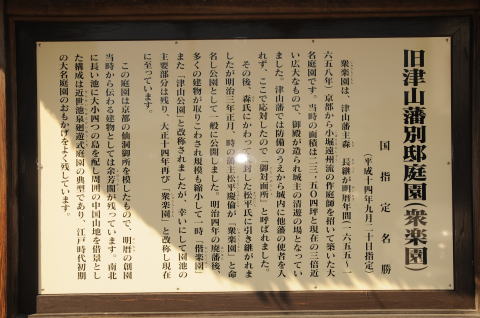 旧津山藩別邸庭園(衆楽園)
国指定名勝
(平成十四年九月二十日指定)
衆楽園は、津山藩主森 長継が明暦年間(一六五五〜一
六五八年)京都から小堀遠州流の作庭師を招いて築いた大
名庭園です。当時の面積は二三、五〇四坪と現在の三倍近
い広大なもので、御殿が造られ城主の清遊の場となってい
ました。津山藩では防備のうえから城内に他藩の使者を入
れず、ここで応対したので「御対面所」と呼ばれました。
その後、森氏にかわって入封した松平氏に引き継がれま
したが明治三年正月、時の藩主松平慶倫が「衆楽園」と命
名し公園として一般に公開しました。明治四年の廃藩後、
多くの建物が取りこわされ規模も縮小して一時「偕楽園」
また「津山公園」と改称されましたが、幸いにして園池の
主要部分は残り、大正十四年再び「衆楽園」と改称し現在
に至っています。
この庭園は京都の仙洞御所を模したもので、明暦の創園
当時から伝わる建物としては余芳閣が残っています。南北
に長い池に大小四つの島を配し周囲の中国山地を借景とし
た構成は近世池泉廻遊式庭園の典型であり、江戸時代初期
の大名庭園のおもかげをよく残しています。